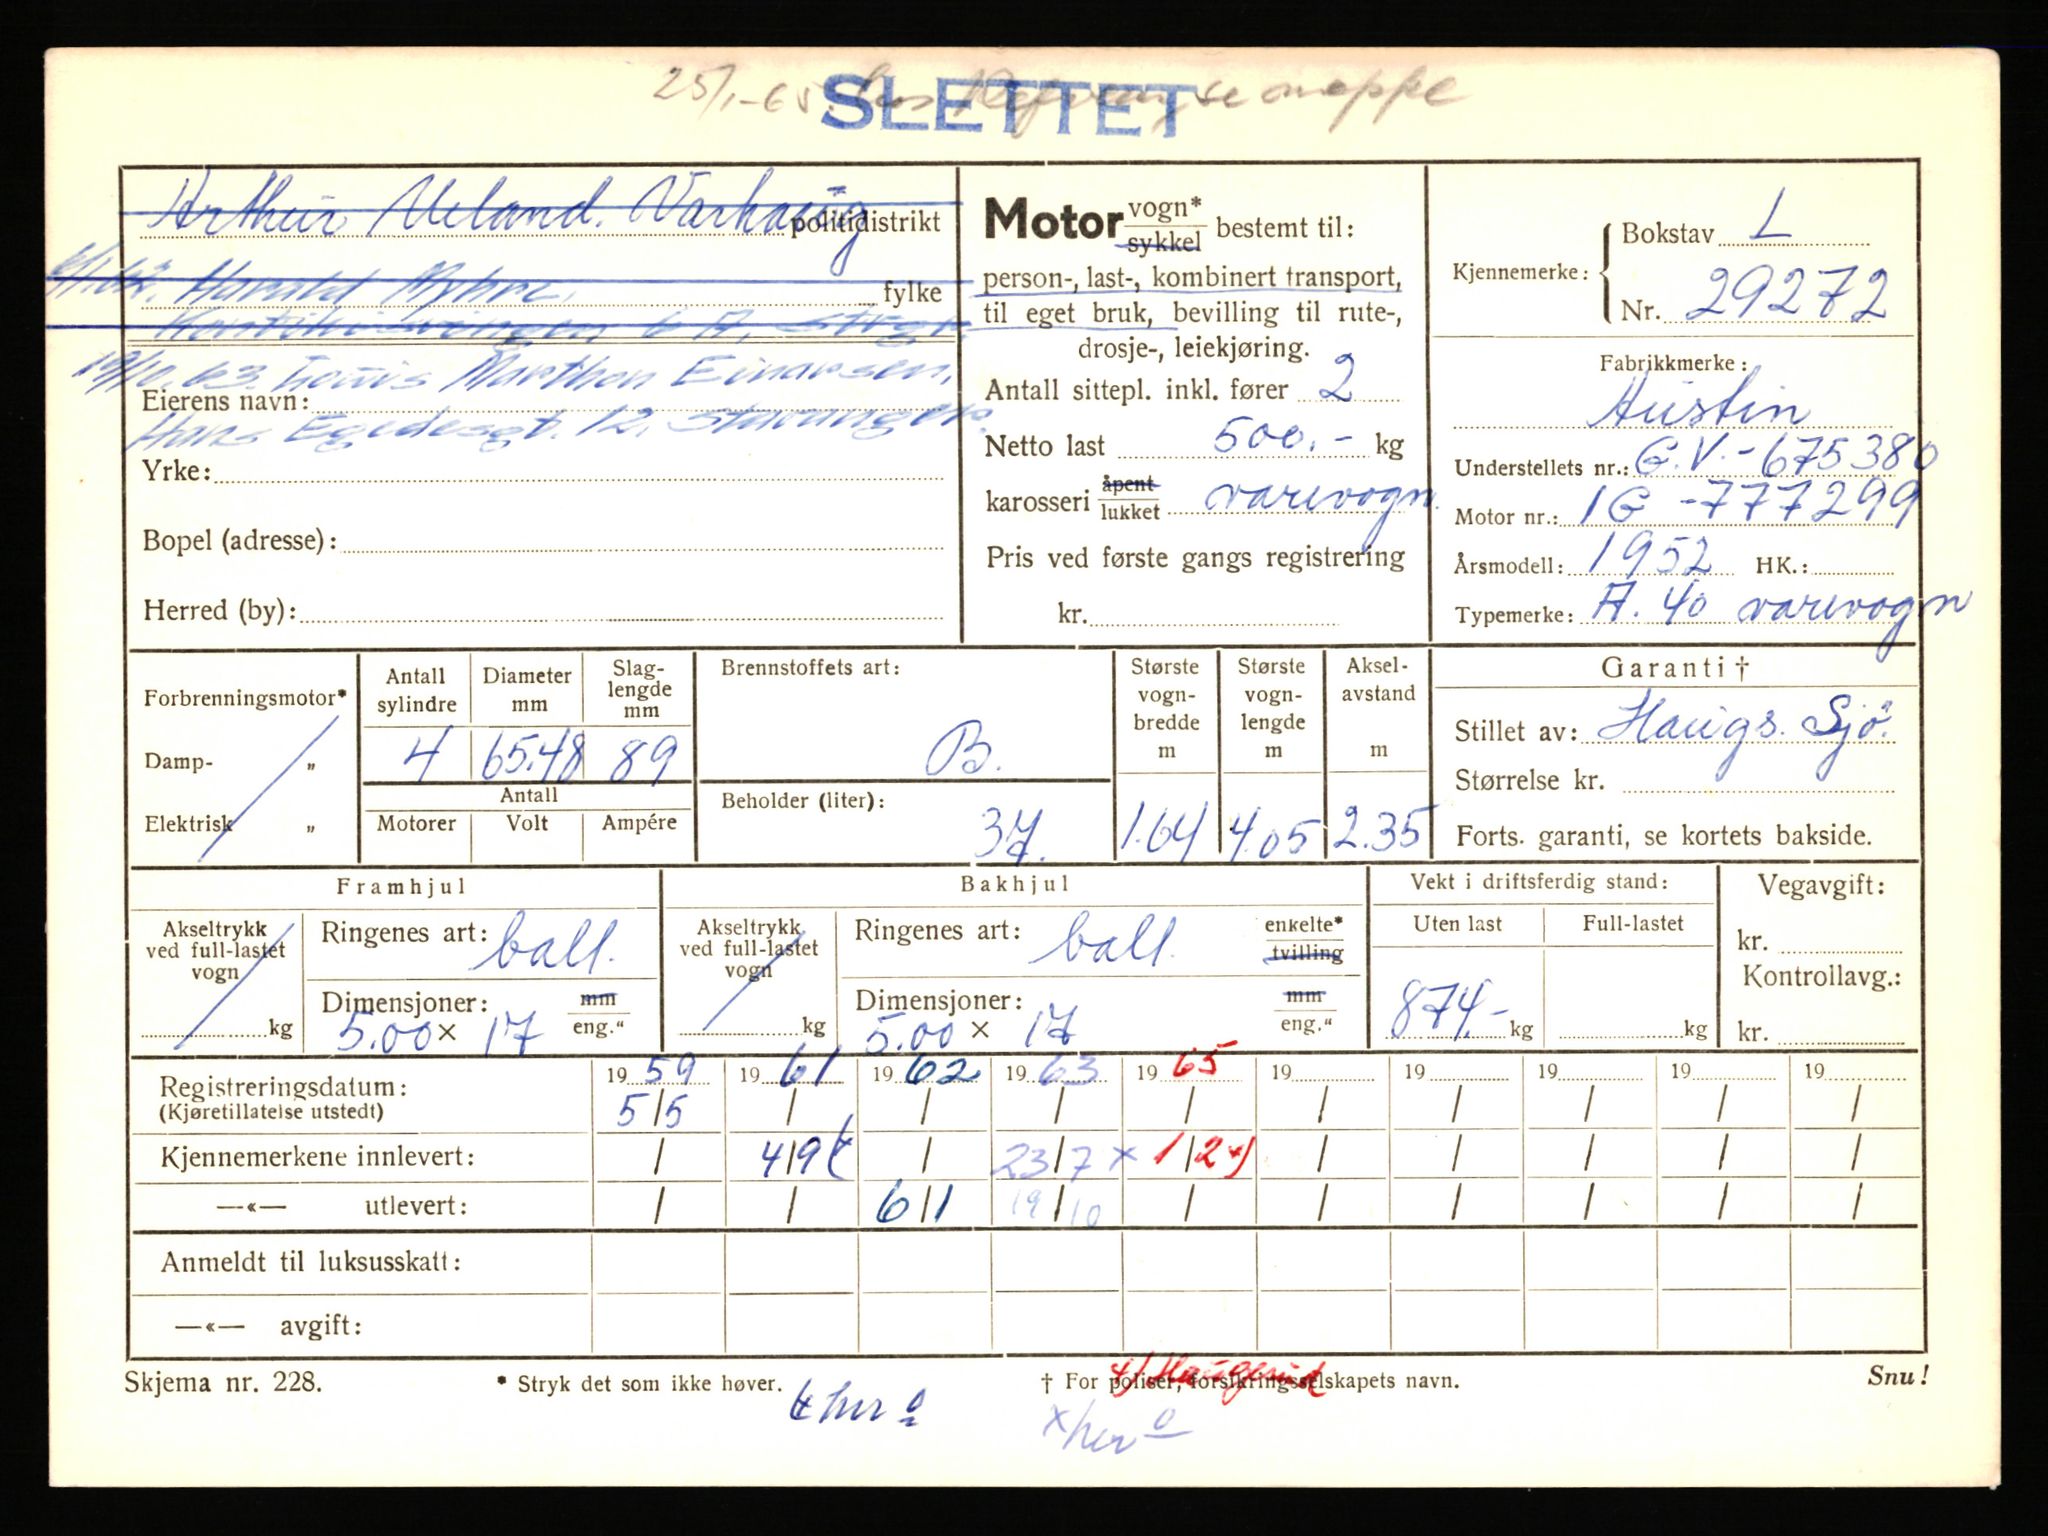 25/1-65. hos
SLETTET
Arthur Ueland. Varhaug politidistrikt
6/1.62. Harald Myhre. fylke
6 A, Stvgr.
19/10.63. Louis Marthon Einarsen,
Eierens navn:
Hans Egedesgt. 12, Stavanger.
Yrke:
Bopel (adresse):
Herred (by):
Motor vogn* sykkel bestemt til:
person-, last-, kombinert transport,
til eget bruk, bevilling til rute-,
drosje-, leiekjøring.
Antall sittepl. inkl. fører 2
Netto last 500.- kg
karosseri åpent lukket varevogn.
Pris ved første gangs registrering
kr.
Kjennemerke: { Bokstav L
Nr. 29272
Fabrikkmerke:
Austin
Understellets nr.: G.V.-675380
Motor nr.: 1G -777299
Årsmodell: 1952 HK.:
Typemerke: A. 40 varevogn
Forbrenningsmotor*
Damp- „
Elektrisk „
Antall sylindre Diameter mm Slag-lengde mm
4 65.48 89
Antall
Motorer Volt Ampére
Brennstoffets art:
B.
Beholder (liter):
37.
Største vogn-bredde m Største vogn-lengde m Aksel-avstand m
1.64 4.05 2.35
Garanti †
Stillet av: Haugs. Sjø.
Størrelse kr.
Forts. garanti, se kortets bakside.
Framhjul
Akseltrykk ved full-lastet vogn
kg
Ringenes art: ball.
Dimensjoner: mm
5.00 × 17 eng."
Bakhjul
Akseltrykk ved full-lastet vogn
kg
Ringenes art: ball. enkelte* tvilling
Dimensjoner: mm
5.00 × 17 eng."
Vekt i driftsferdig stand:
Uten last Full-lastet
874.- kg kg
Vegavgift:
kr.
Kontrollavg.:
kr.
Registreringsdatum: 19 59 19 61 19 62 19 63 19 65 19 19 19 19 19
(Kjøretillatelse utstedt) 5/5 / / / / / / / / /
Kjennemerkene innlevert: / 4/9 / 23/7 x 1/2 / / / / /
—«— utlevert: / / 6/1 19/10 / / / / / /
Anmeldt til luksusskatt:
—«— avgift:
Skjema nr. 228. * Stryk det som ikke høver. † For poliser, forsikringsselskapets navn. Snu!
Haugesund
her o
x her o